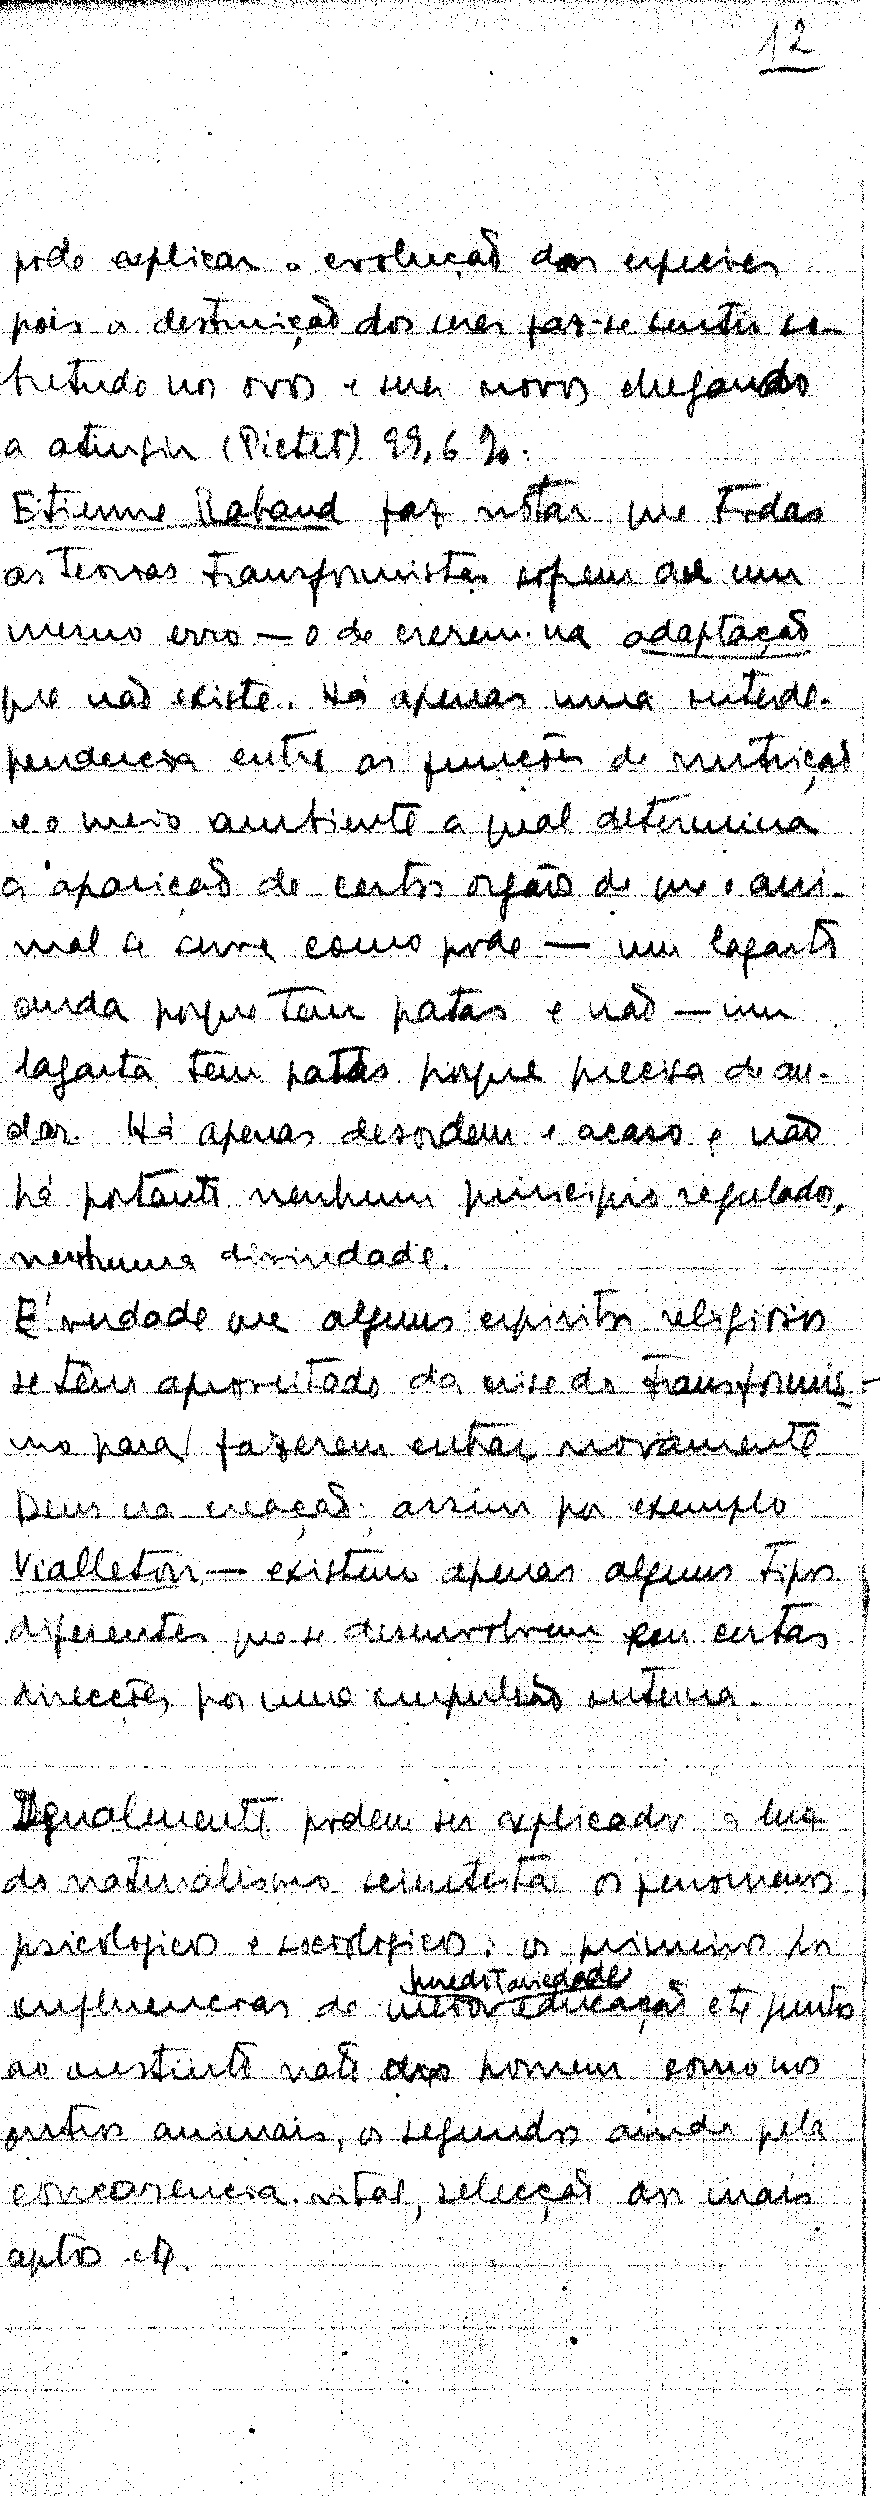 12
pode explicar a evolução das especies
pois a destruição dos seres faz-se sentir so-
bretudo nos ovos e seres novos chegando
a atingir (Pictet) 99,6 %.
Etienne Rabaud faz notar que todas
as teorias transformistas sofrem de um
mesmo erro — o de crerem na adaptação
que não existe. Há apenas uma interde-
pendencia entre as funções de nutrição
e o meio ambiente a qual determina
a aparição de certos orgãos de que o ani-
mal se serve como pode — um lagarto
anda porque tem patas e não — um
lagarto tem patas porque precisa de an-
dar. Há apenas desordem e acaso e não
há portanto nenhum principio regulador,
nenhuma divindade.
E' verdade que alguns espiritos religiosos
se têm aproveitado da crise do transformis-
mo para fazerem entrar novamente
Deus na creação; assim por exemplo
Vialleton — existem apenas alguns tipos
diferentes que se desenvolvem em certas
direcções por uma impulsão interna.
Igualmente podem ser explicados á luz
do naturalismo scientista os fenomenos
psicologicos e sociologicos: os primeiros por
hereditariedade
influencias de meio, educação etc junto
ao instinto nato do homem como nos
outros animais, os segundos ainda pela
concorrencia vital, selecção dos mais
aptos etc.